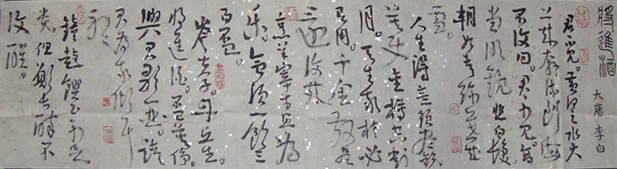 將進酒
大唐 李白
君不見黃河之水天
上來奔流到海
不復回君不見高
堂明鏡悲白髮
朝如青絲暮成
雪
人生得意須盡歡
莫使金樽空對
月天生我材必
有用千金散盡
還復來
烹羊宰牛且為
樂會須一飲三
百盃
岑夫子丹丘生
將進酒莫停
與君歌一曲請
君為我傾耳
聽
鐘鼓饌玉不足
貴但願長醉不
復醒